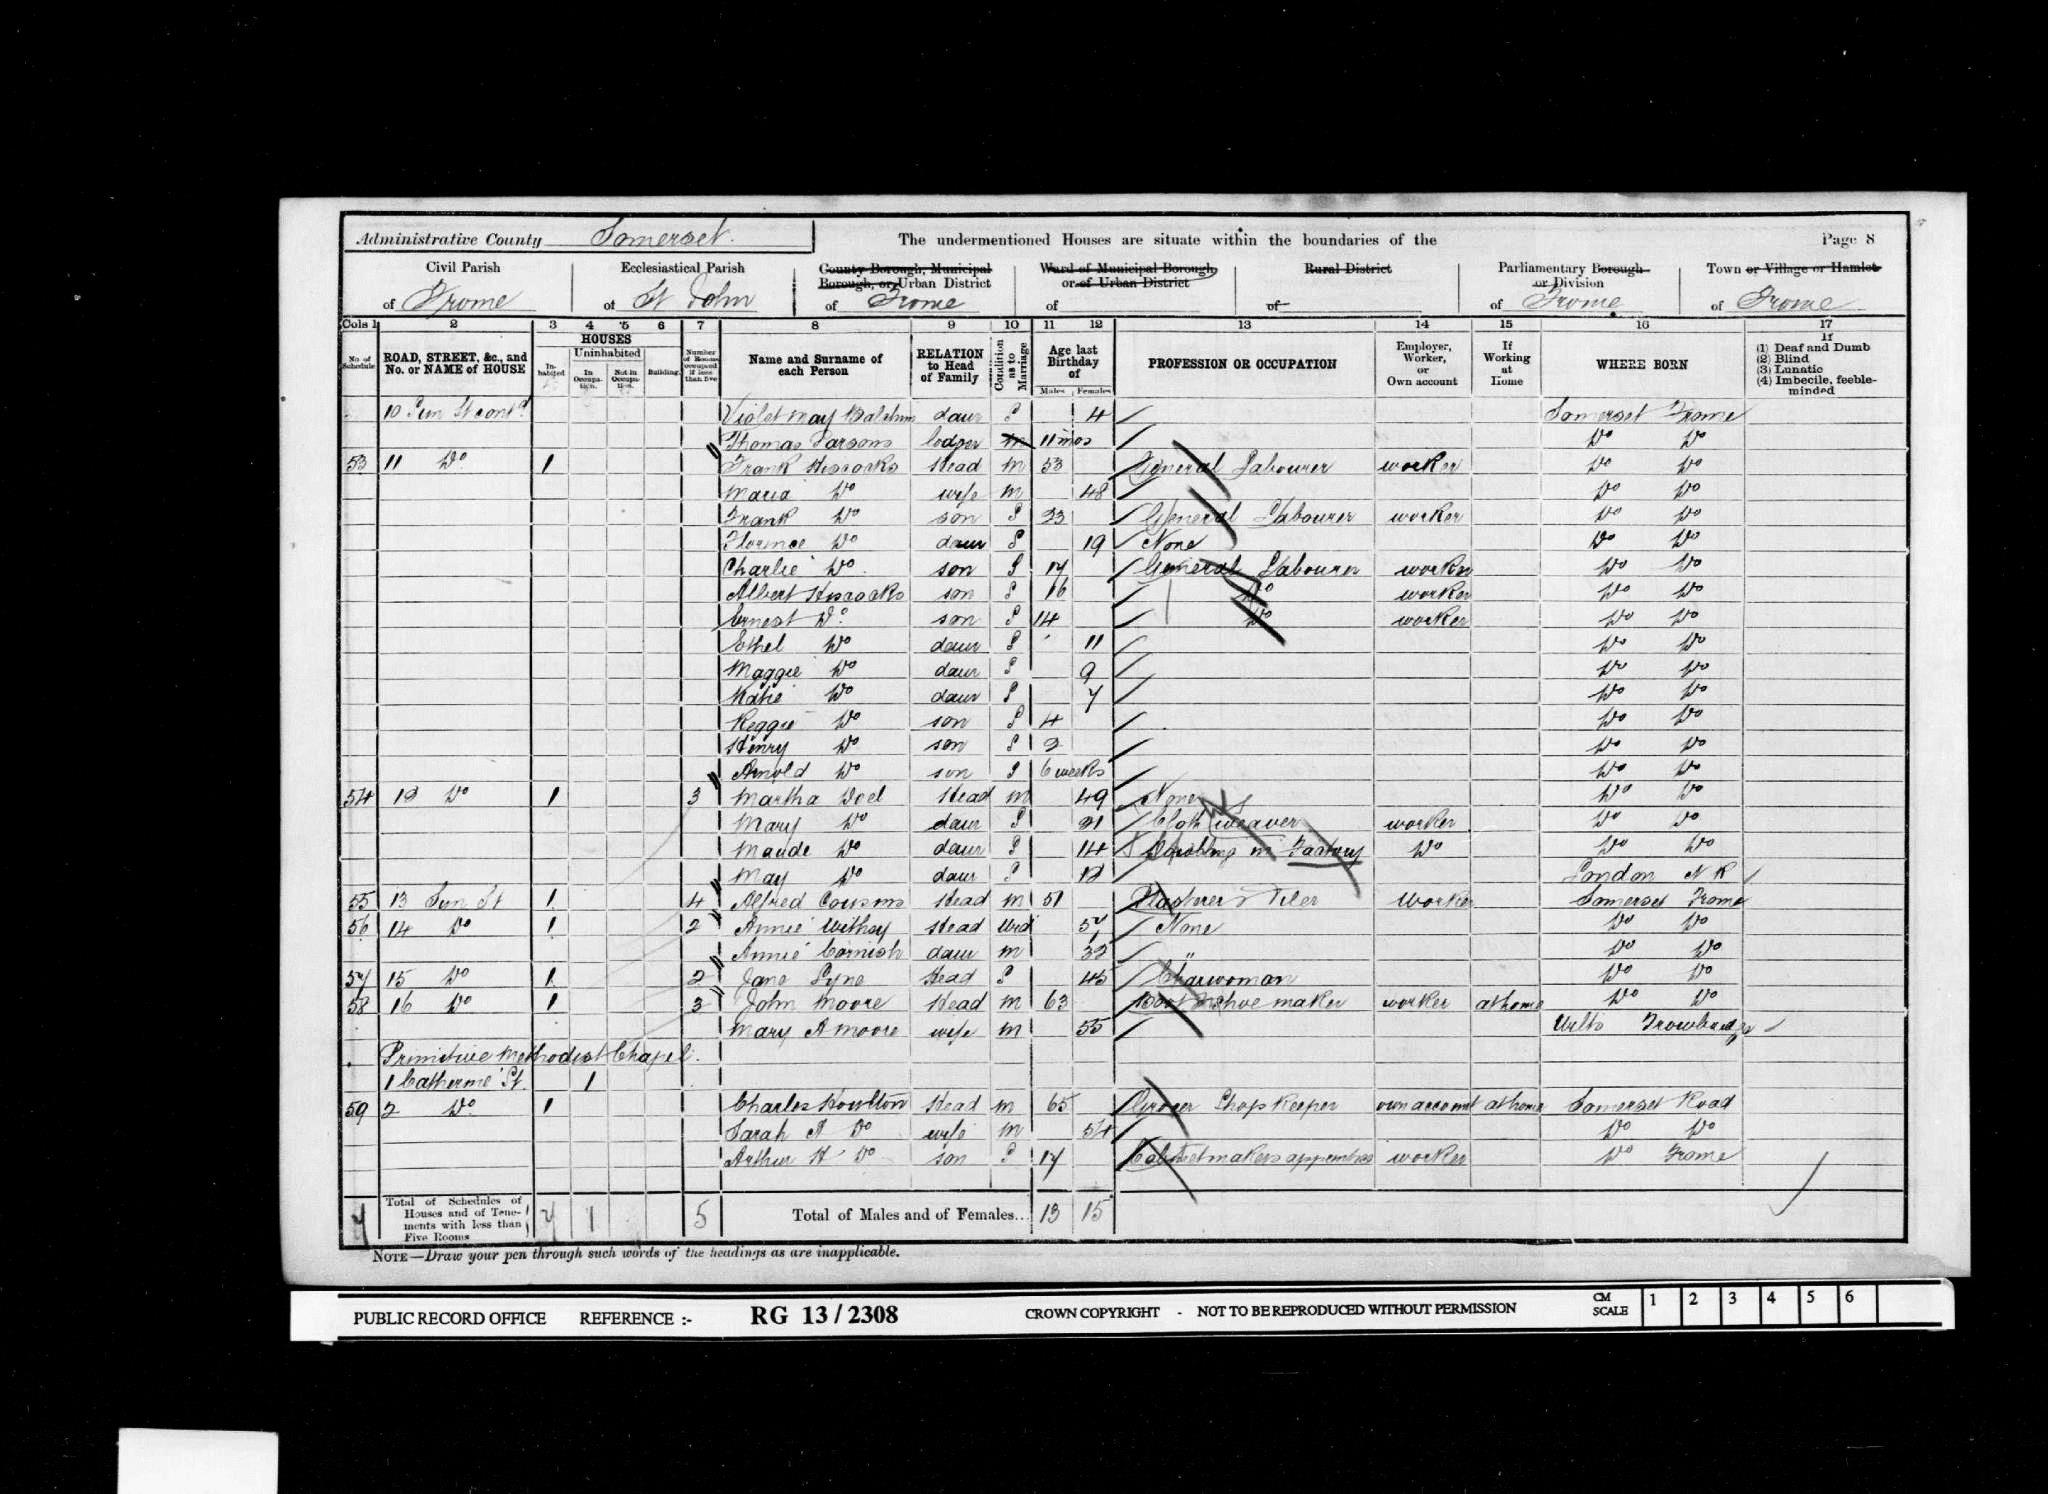 Administrative County Somerset. The undermentioned Houses are situate within the boundaries of the Page 8
Civil Parish Ecclesiastical Parish County Borough, Municipal Borough, or Urban District Ward of Municipal Borough or of Urban District Rural District Parliamentary Borough or Division Town or Village or Hamlet
of Frome of St John of Frome of of of Frome of Frome
Cols 1 2 3 4 5 6 7 8 9 10 11 12 13 14 15 16 17
No. of Schedule ROAD, STREET, &c., and No. or NAME of HOUSE HOUSES Inhabited Uninhabited In Occupation. Not in Occupation. Building. Number of Rooms occupied if less than five Name and Surname of each Person RELATION to Head of Family Condition as to Marriage Age last Birthday of Males Females PROFESSION OR OCCUPATION Employer, Worker, or Own account If Working at Home WHERE BORN If (1) Deaf and Dumb (2) Blind (3) Lunatic (4) Imbecile, feeble-minded
10 Sun St contd Violet May daur S 4 Somerset Frome
Thomas Parsons lodger m 11 mos Do Do
53 11 Do 1 Frank Hiscocks Head m 53 General Labourer worker Do Do
Maria Do wife m 48 Do Do
Frank Do son S 23 General Labourer worker Do Do
Florence Do daur S 19 None Do Do
Charlie Do son S 17 General Labourer worker Do Do
Albert Hiscocks son S 16 Do worker Do Do
Ernest Do son S 14 Do worker Do Do
Ethel Do daur S 11 Do Do
Maggie Do daur S 9 Do Do
Katie Do daur S 7 Do Do
Reggie Do son S 4 Do Do
Henry Do son S 2 Do Do
Arnold Do son S 6 weeks Do Do
54 12 Do 1 3 Martha Doel Head m 49 None Do Do
Mary Do daur S 21 Cloth weaver worker Do Do
Maude Do daur S 14 in Factory Do Do Do
May Do daur S 12 London N K
55 13 Sun St 1 4 Alfred Cousins Head m 51 Plasterer & Tiler Worker Somerset Frome
56 14 Do 1 2 Annie Withey Head Wid 57 None Do Do
Annie Cornish daur m 32 " Do Do
57 15 Do 1 2 Jane Pyne Head S 45 Charwoman Do Do
58 16 Do 1 3 John Moore Head m 63 Boot & Shoe maker worker at home Do Do
Mary A Moore wife m 55 Wilts Trowbridge
Primitive Methodist Chapel.
1 Catherine St. 1
59 2 Do 1 Charles Houlton Head m 65 Grocer Shop Keeper own account at home Somerset Road
Sarah A Do wife m 54 Do Do
Arthur H Do son S 17 Cabinetmakers apprentice worker Do Frome
7 Total of Schedules of Houses and of Tenements with less than Five Rooms 7 1 5 Total of Males and of Females... 13 15
NOTE—Draw your pen through such words of the headings as are inapplicable.
PUBLIC RECORD OFFICE REFERENCE :- RG 13 / 2308 CROWN COPYRIGHT - NOT TO BE REPRODUCED WITHOUT PERMISSION CM SCALE 1 2 3 4 5 6